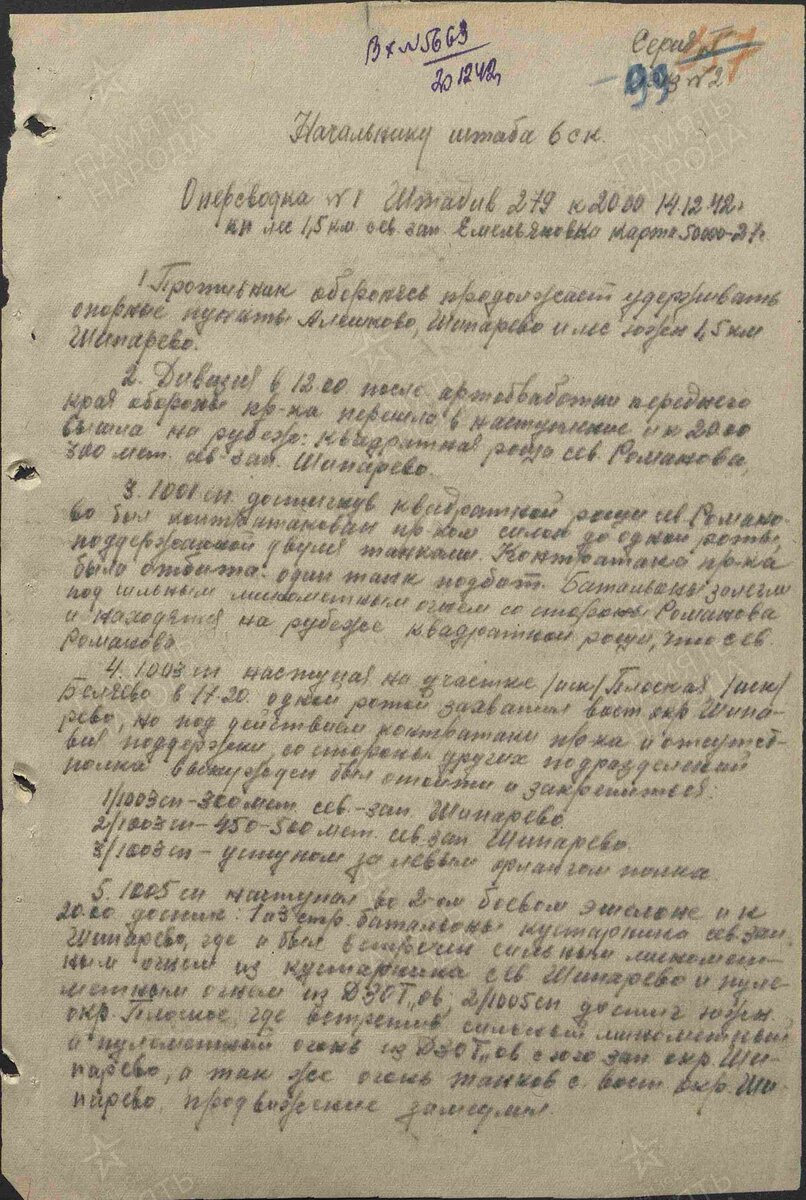 Вх №5663
20 12 42г
Серия
99
№2
Начальнику штаба 6 ск.
Оперсводка №1 Штадив 279 к 20 00 14.12.42г
кп лес 1,5 км сев. зап. Емельяновка карта 50000-27г.
1 Противник обороняясь продолжает удерживать
опорные пункты Алешково, Шипарево и лес южн 1,5 км
Шипарево.
2. Дивизия в 12 00 после артобработки переднего
края обороны пр-ка перешла в наступление и к 20 00
вышла на рубеж: квадратная роща сев. Романова,
300 мет. сев. зап. Шипарево.
3. 1001 сп достигнув квадратной рощи сев. Романо-
во был контратакован пр-ком силой до одной роты,
поддержанной двумя танками. Контратака пр-ка
была отбита: один танк подбит. Батальоны залегли
под сильным минометным огнем со стороны Романова
и находятся на рубеже квадратной рощи, что сев.
Романово
4. 1003 сп наступая на участке /иск/ Плоская, /иск/
Беляево в 17.20. одной ротой захватил вост окр. Шипа-
рево, но под действием контратаки пр-ка и отсутст-
вия поддержки со стороны других подразделений
полка вынужден был отойти и закрепиться:
1/1003 сп - 300 мет. сев. - зап Шипарево
2/1003 сп - 450-500 мет. сев. зап Шипарево.
3/1003 сп - уступом за левым флангом полка
5. 1005 сп наступал во 2-ом боевом эшелоне и к
20.00. достиг: 1 и 3 стр. батальоны кустарника сев. зап.
Шипарево, где и был встречен сильным миномет-
ным огнем из кустарника сев Шипарево и пуле-
метным огнем из ДЗОТ"ов, 2/1005 сп достиг южн.
окр. Плоское где встретив сильный минометный
и пулеметный огонь из ДЗОТ"ов с юго зап окр. Ши-
парево, а так же огонь танков с вост окр. Ши-
парево продвижение замедлил.
ПАМЯТЬ
НАРОДА